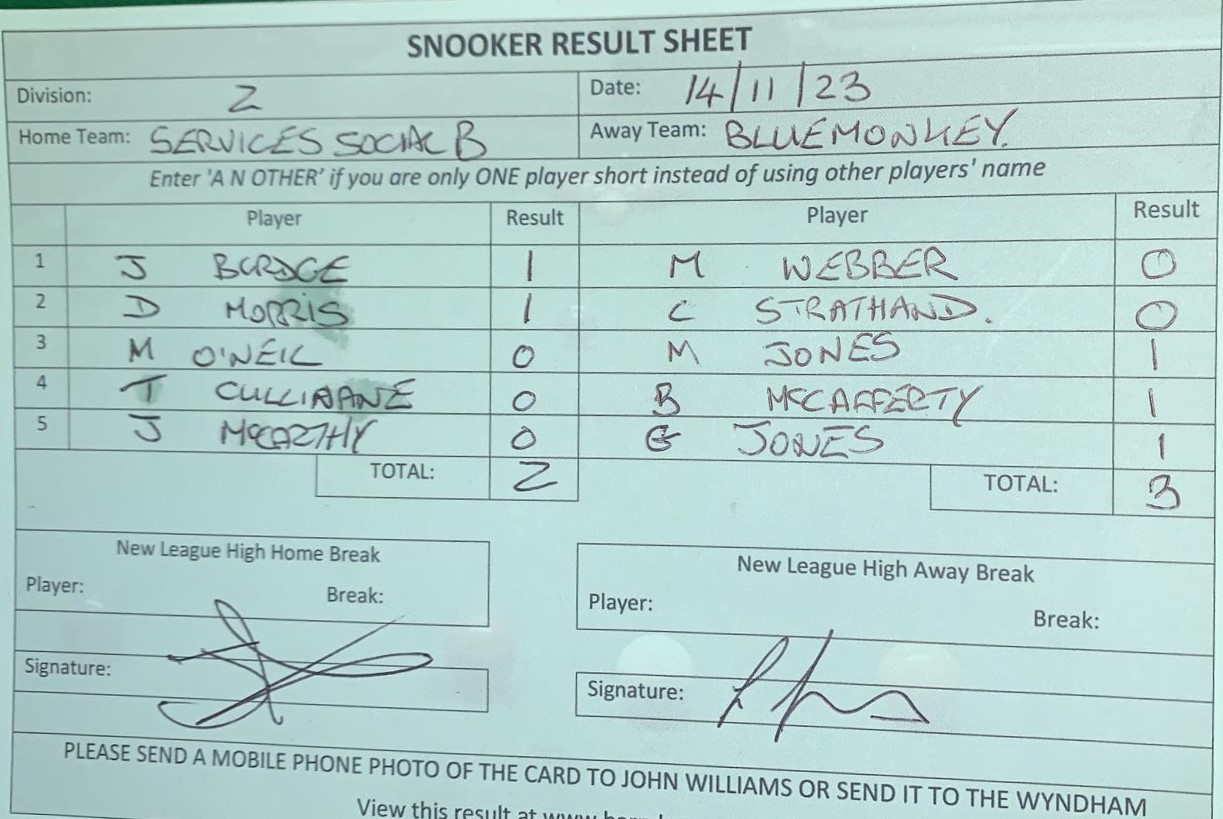 SNOOKER RESULT SHEET
Division: 2 Date: 14/11/23
Home Team: SERVICES SOCIAL B Away Team: BLUEMONKEY.
Enter 'A N OTHER' if you are only ONE player short instead of using other players' name
Player Result Player Result
1 J BURDGE 1 M WEBBER 0
2 D MORRIS 1 C STRATHAND. 0
3 M O'NEIL 0 M JONES 1
4 T CULLINANE 0 B MCCAFFERTY 1
5 J MCCARTHY 0 G JONES 1
TOTAL: 2 TOTAL: 3
New League High Home Break New League High Away Break
Player: Break: Player: Break:
Signature: Signature:
PLEASE SEND A MOBILE PHONE PHOTO OF THE CARD TO JOHN WILLIAMS OR SEND IT TO THE WYNDHAM
View this result at